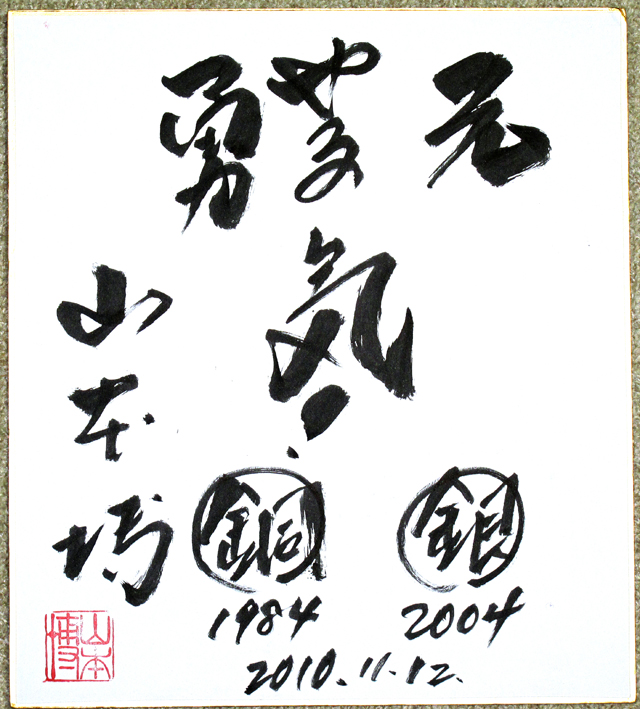 元 やる 勇
気!
山本博
銅 銀
1984 2004
2010.11.12.
山本
博